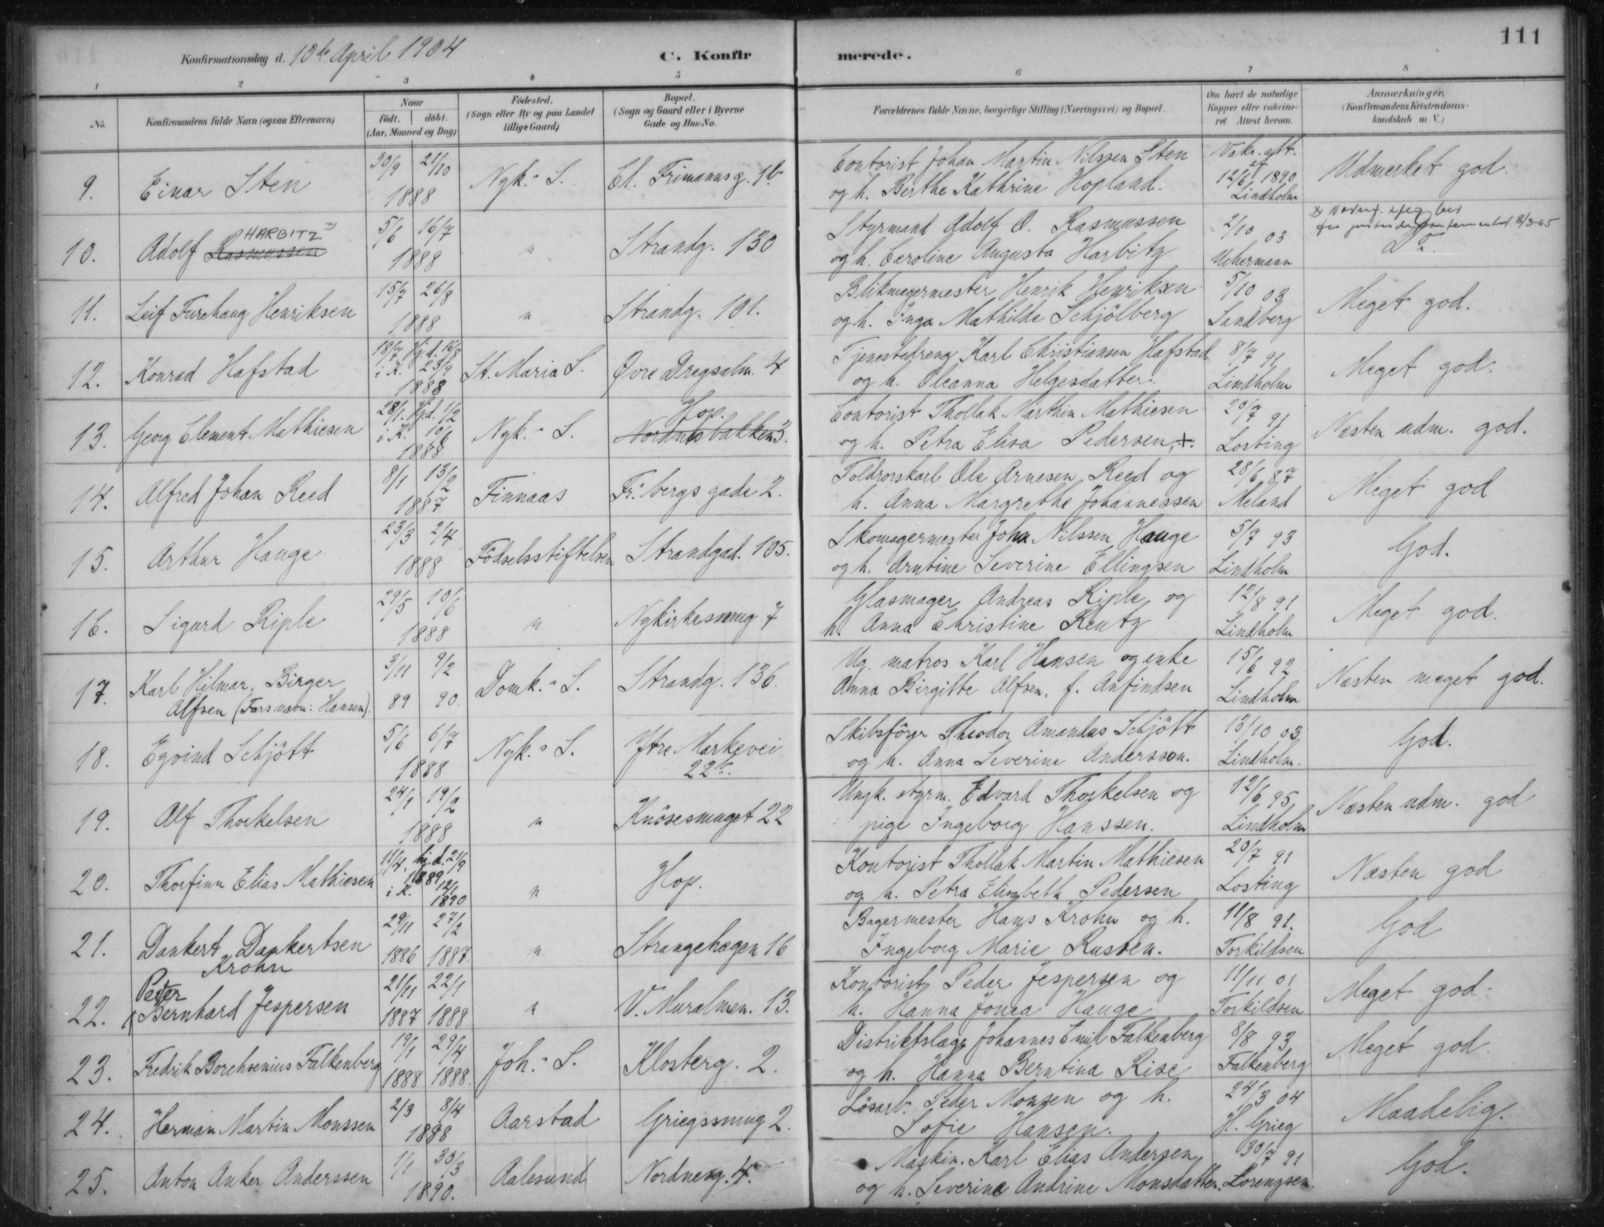 111
Konfirmationsdag d. 10de April 1904
C. Konfirmerede.
1 2 3 4 5 6 7 8
No.
Konfirmandens fulde Navn (ogsaa Efternavn)
Naar
födt. döbt.
(Aar, Maaned og Dag)
Födested.
(Sogn eller By og paa Landet
tillige Gaard)
Bopæl.
(Sogn og Gaard eller i Byerne
Gade og Hus-No.
Forældrenes fulde Navne, borgerlige Stilling (Næringsvei) og Bopæl.
Om havt de naturlige
Kopper eller vaccineret.
Attest herom.
Anmærkninger.
(Konfirmandens Kristendomskundskab
m. V.)
9. Einar Sten 30/9 21/10 1888 Nyk.- S. Cl. Frimannsg. 16
Contorist Johan Martin Nilssen Sten
og h. Berthe Kathrine Hopland.
Vakc. att. af 12/6 1890 Lindholm
Udmerket god.
10. Adolf Rasmussen HARBITZ 5/6 16/7 1888 " Strandg. 130
Styrmand Adolf O. Rasmussen
og h. Caroline Augusta Harbitz
2/10 03 Uchermann
Do.
11. Leif Furehaug Henriksen 15/7 26/8 1888 " Strandg. 101.
Blikmagermester Henrik Henriksen
og h. Inga Mathilde Schjölberg
5/10 03 Sundberg
Meget god.
12. Konrad Hafstad 18/7 Hj.d. 16/8 i K. 23/9 1888 St. Maria S. Øvre Dregsalm. 4
Tjenestedreng Karl Christiansen Hafstad
og h. Oleanna Helgesdatter.
8/7 91 Lindholm
Meget god.
13. Georg Clement Mathiesen 28/1. Hjd. 1/2 i K. 10/6 1888 Nyk.- S. Nordnæsbakken 3. Hop.
Contorist Thollak Marthin Mathiesen
og h. Petra Elisa Pedersen, +.
20/7 91 Losting
Næsten udm. god.
14. Alfred Johan Reed 8/1 13/2 1887 Finnaas Fr.bergs gade 2.
Toldrorskarl Ole Arnesen Reed og
h. Anna Margrethe Johannessen
28/6 87 Meland
Meget god
15. Arthur Hauge 23/3 2/4 1888 Födselsstiftelsen Strandgad. 105.
Skomagermester John Nilssen Hauge
og h. Arntine Severine Ellingsen
5/7 93 Lindholm
God.
16. Sigurd Riple 29/5 10/6 1888 " Nykirkesmug 7
Glasmager Andreas Riple og
h. Anna Christine Rentz
12/8 91 Lindholm
Meget god.
17. Karl Hilmar, Birger
Alfsen (Farsnavn: Hansen). 3/11 89 9/2 90. Domk.- S. Strandg. 136.
Ug. matros Karl Hansen og enke
Anna Birgitte Alfsen, f. Anfindsen
15/6 92 Lindholm
Næsten meget god.
18. Eyvind Schjött 5/6 6/7 1888 Nyk.- S. Ytre Markevei 22b.
Skibsförer Theodor Amandus Schjött
og h. Anna Severine Anderssen.
13/10 03 Lindholm.
God.
19. Alf Thorkelsen 24/1 19/2 1888 " Knösesmuget 22
Ungk. styrm. Edvard Thorkelsen og
pige Ingeborg Hanssen.
12/6 95 Lindholm
Næsten udm. god
20. Thorfinn Elias Mathiesen 11/4. hj.d. 21/9 1889 i K. 12/1 1890 " Hop.
Kontorist Thollak Martin Mathiesen
og h. Petra Elisabeth Pedersen
20/7 91 Losting
Næsten god
21. Dankert Dankertsen
Krohn 29/11 1886 27/2 1887 " Strangehagen 16
Bagermester Hans Krohn og h.
Ingeborg Marie Rusten.
11/8 91. Torkildsen
God
22. Peter
Bernhard Jespersen 21/11 1887 22/1 1888 " V. Muralmen. 13.
Kontorist Peder Jespersen og
h. Hanna Jonea Hauge
11/11 01 Torkildsen
Meget god.
23. Fredrik Borchsenius Falkenberg 19/1 1888 29/4 1888. Joh.- S. Klosterg. 2.
Distriktslæge Johannes Emil Falkenberg
og h. Hanna Berntina Rise
8/8 93 Falkenberg
Meget god.
24. Herman Martin Monssen 2/3 8/4 1888 Aarstad Griegssmug 2.
Lösarb. Peder Monsen og h.
Sofie Hansen.
24/3 04 H. Grieg
Maadelig.
25. Anton Anker Anderssen 1/1 30/3 1890. Aalesund Nordnesg. 4.
Maskin. Karl Elias Andersen
og h. Severine Andrine Monsdatter.
30/7 91 Lorenzsen
God.